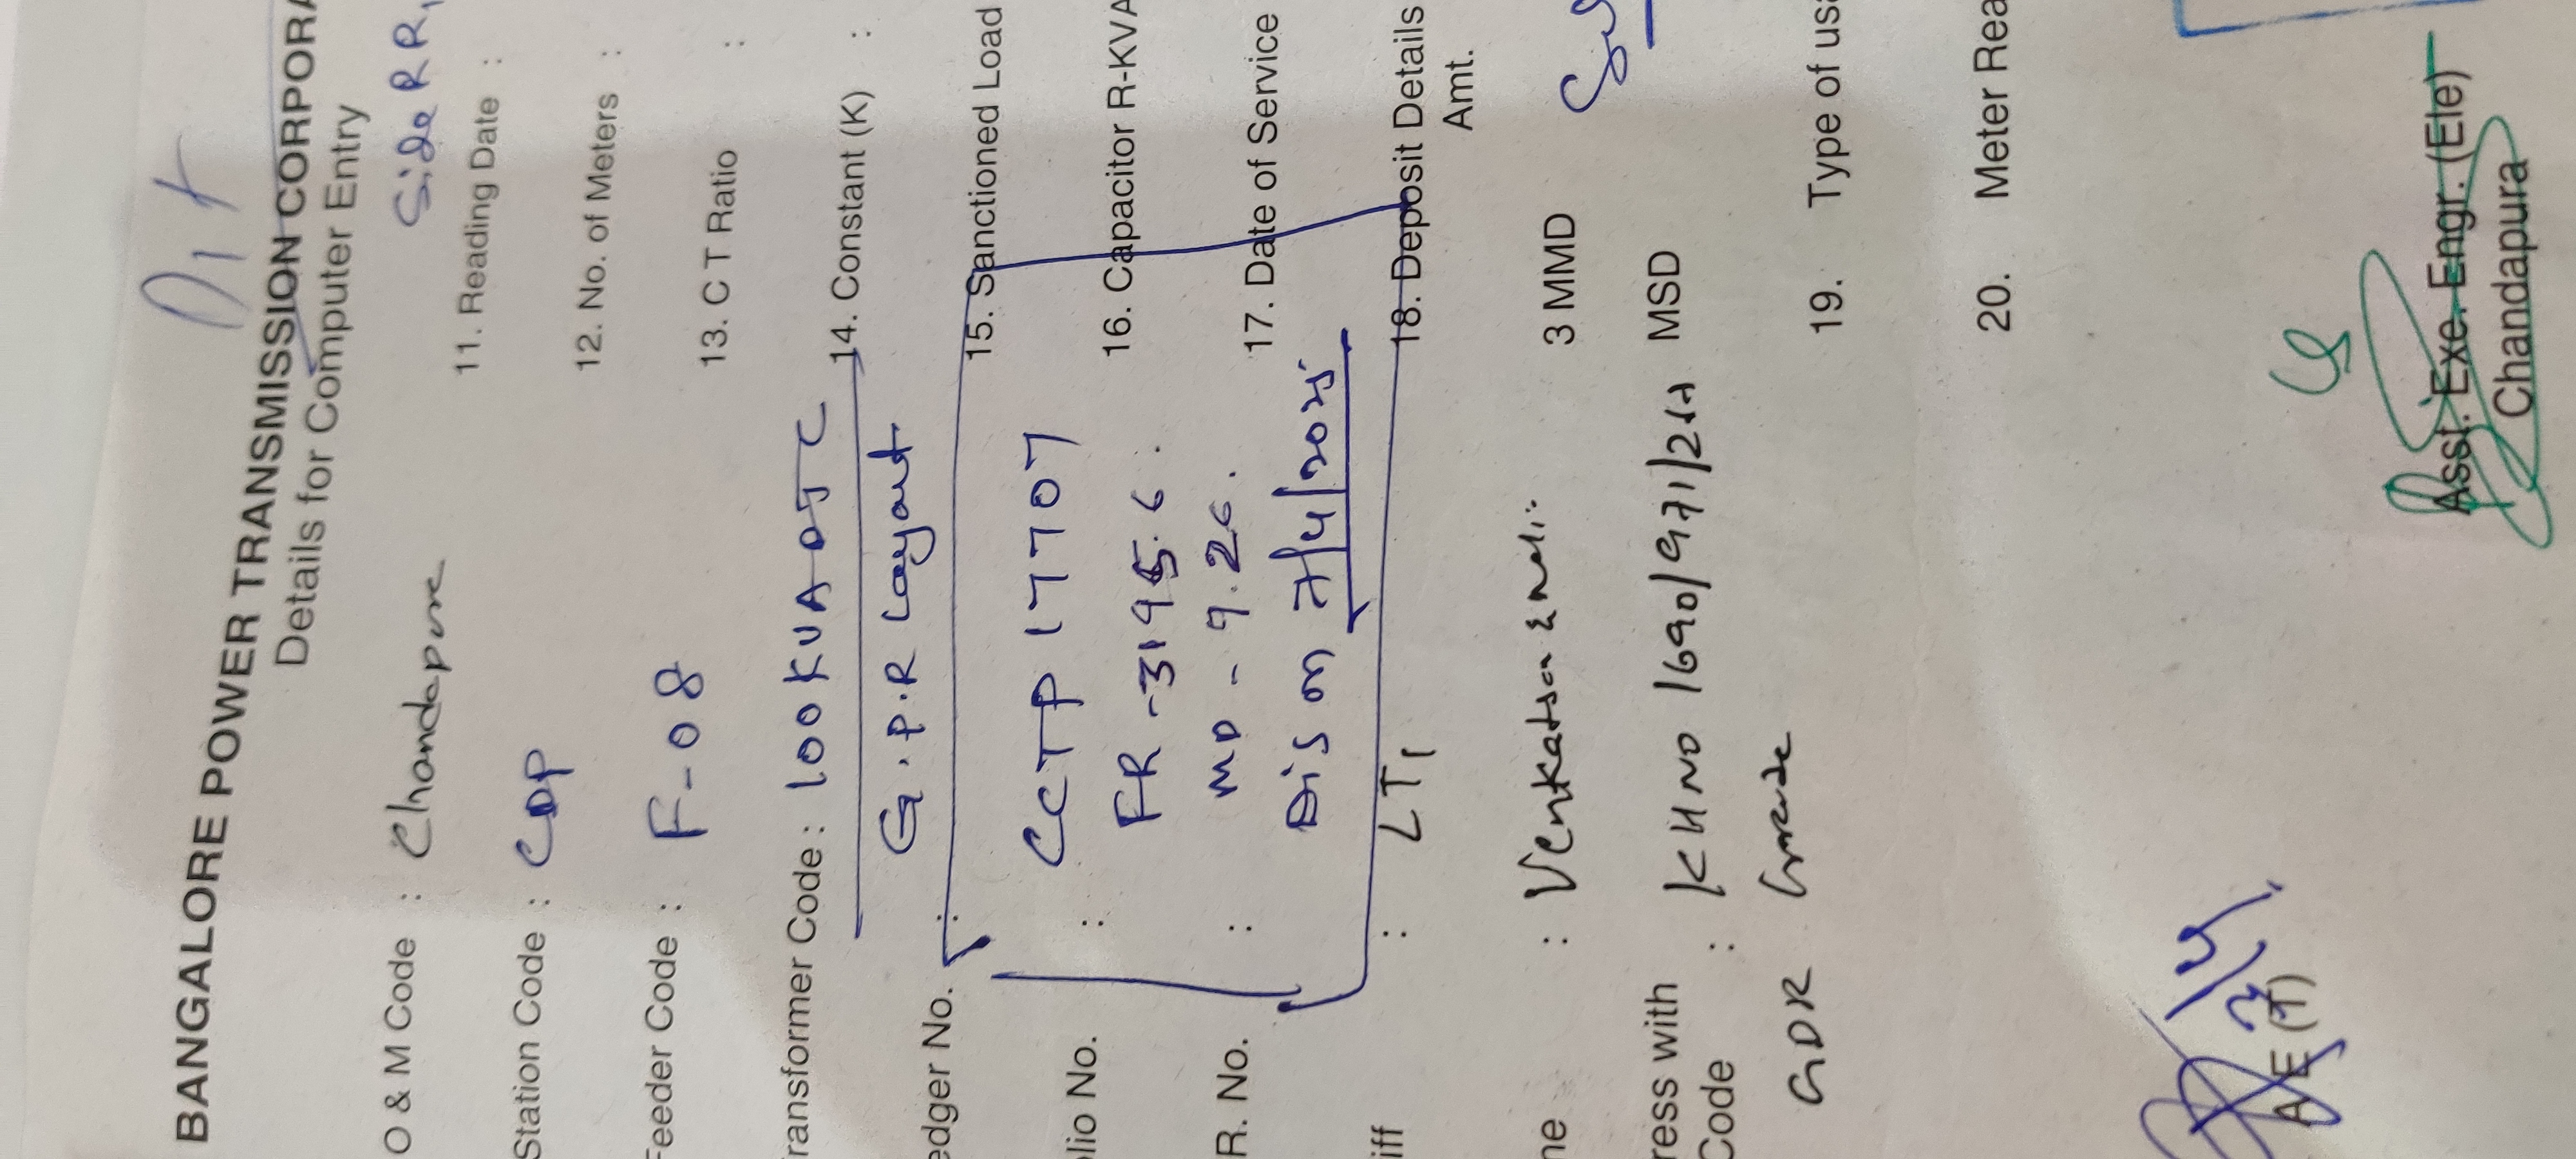 BANGALORE POWER TRANSMISSION CORPORA
Details for Computer Entry
O & M Code : Chandapura
Station Code : CDP
Feeder Code : F-08
ransformer Code : 100 KVA
G.P.R Layout
edger No. :
CCTP 17707
lio No. :
FR - 3195.6.
R. No. :
MD - 9.26.
Dis on 7/4/2025
iff : LT1
ne :
ress with
Code : KHNO 1690/971/212
GDR
11. Reading Date :
12. No. of Meters :
13. C T Ratio :
14. Constant (K) :
15. Sanctioned Load
16. Capacitor R-KVA
17. Date of Service
18. Deposit Details
Amt.
3 MMD
MSD
19. Type of usa
20. Meter Rea
A E (T)
Asst. Exe. Engr. (Ele)
Chandapura